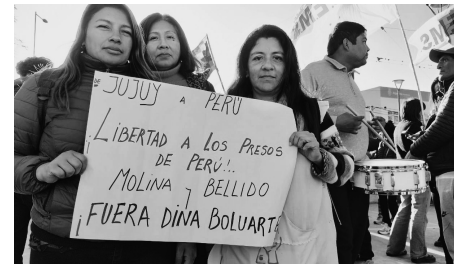 DE JUJUY A PERÚ
¡LIBERTAD A LOS PRESOS
DE PERÚ!..
MOLINA y BELLIDO
¡FUERA DINA BOLUARTE